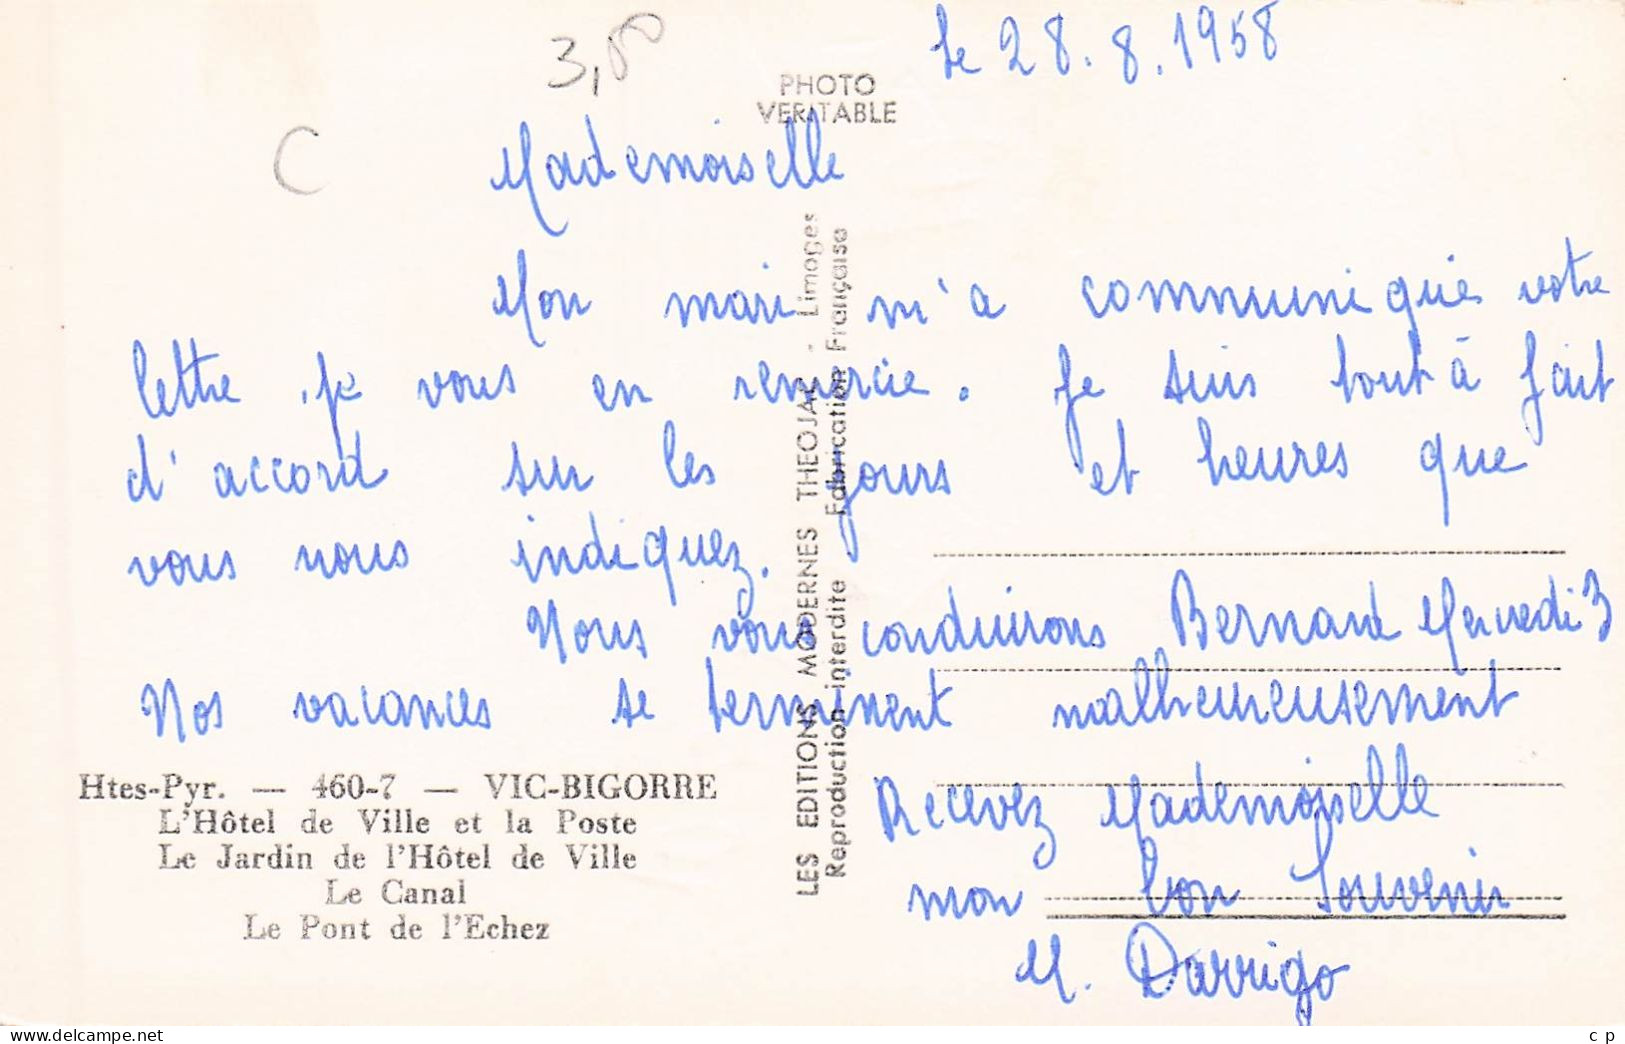 3,00
le 28.8.1958
PHOTO
VERITABLE
C
Mademoiselle
Mon mari m'a communiqué votre
lettre, je vous en remercie. Je suis tout à fait
d'accord sur les jours et heures que
vous nous indiquez.
Nous vous conduirons Bernard Mercredi 3
Nos vacances se terminent malheureusement
Recevez Mademoiselle
mon bon souvenir
M. Darrigo
Htes-Pyr. — 460-7 — VIC-BIGORRE
L'Hôtel de Ville et la Poste
Le Jardin de l'Hôtel de Ville
Le Canal
Le Pont de l'Echez
LES EDITIONS MODERNES THEOJAC - Limoges
Reproduction interdite Fabrication Française
www.delcampe.net
c p